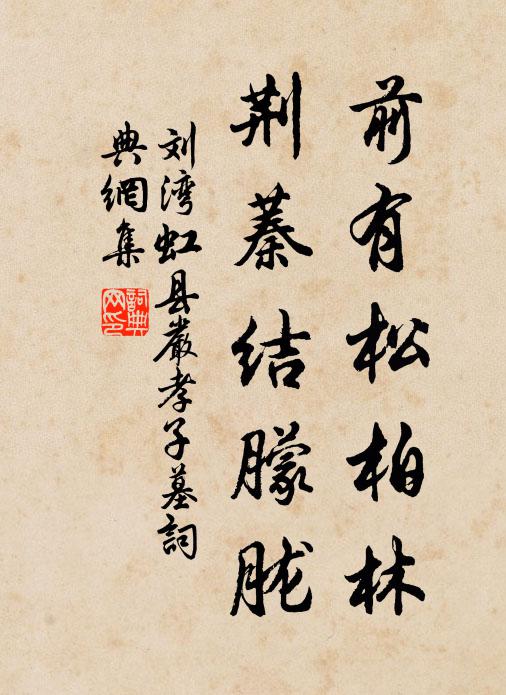 前有松柏林
荆蓁结朦胧
刘湾虹县嚴孝子墓詞
典網集
詞典网印